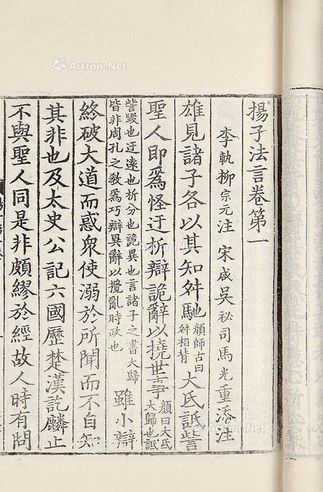 揚子法言卷第一
李軌柳宗元注　宋咸吳祕司馬光重添注
雄見諸子各以其知舛馳顏師古曰舛相背大氐詆訾
聖人即爲怪迂析辯詭辭以撓世事顏曰大氐大歸也詆
訾毀也迂遠也析分也詭異也言諸子之書大歸皆非周孔之教爲巧辯異辭以攪亂時政也雖小辯
終破大道而惑衆使溺於所聞而不自知
其非也及太史公記六國歷楚漢訖麟止
不與聖人同是非頗繆於經故人時有問
Artron.Net